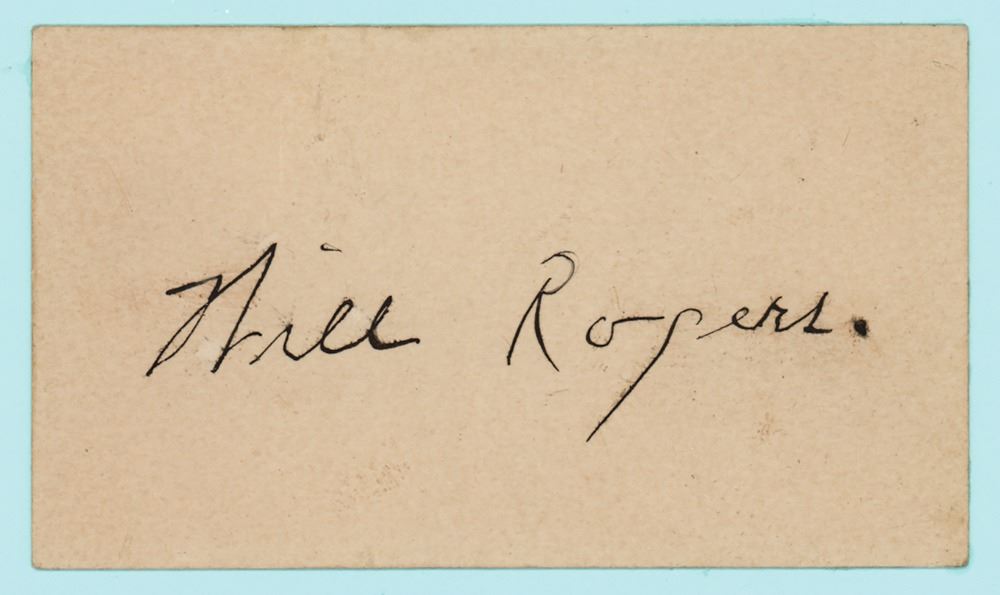 Will Rogers.